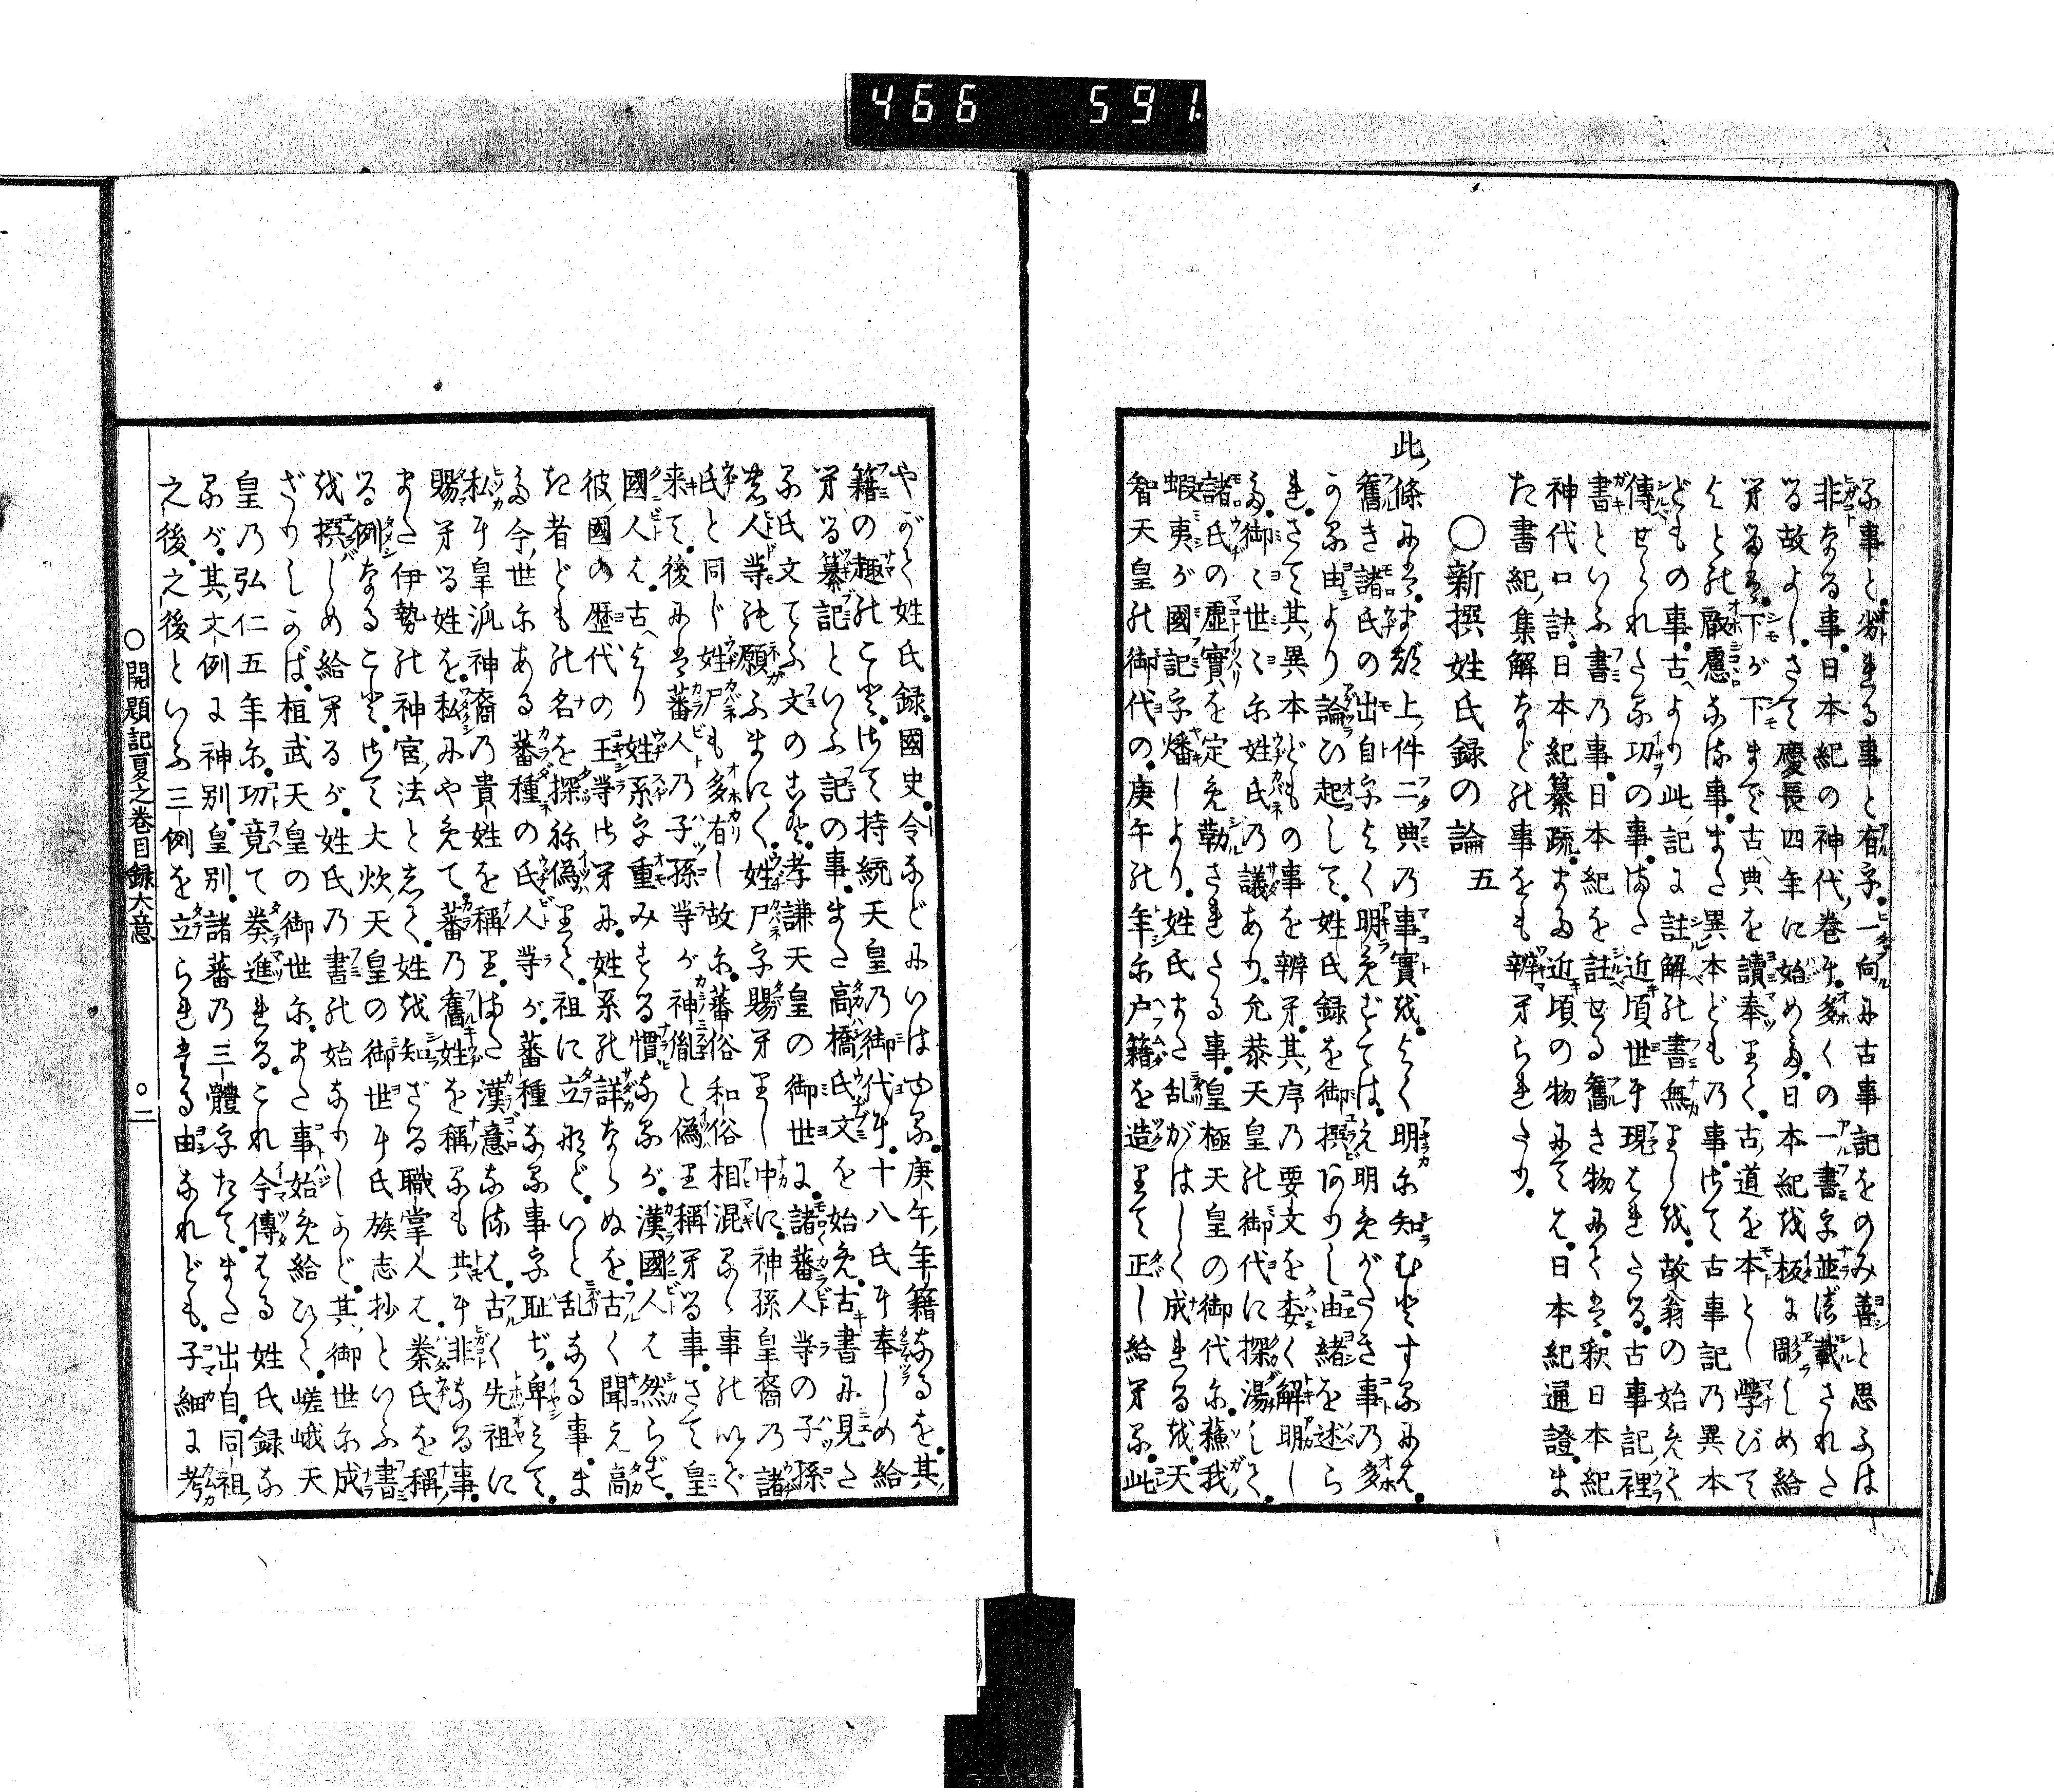 る事と。劣れる事と有を。一向に古事記をのみ善と思ふは
非なる事。日本紀の神代巻に。多くの一書を並べ載された
る故よし。さて慶長四年に始めて。日本紀を板に彫しめ給
へるは。下が下まで古典を讀奉りて。古道を本とし學びて
よとの厳慮なる事。また異本どもの事。さて古事記の異本
どもの事。古へより此記に註解の書無りしを。故翁の始めて
傳せられたる功の事。また近頃世に現はれたる。古事記裡
書といふ書の事。日本紀を註せる舊き物には。釈日本紀
神代口訣。日本紀纂疏。また近頃の物にては。日本紀通證。ま
た書紀集解などの事をも辨へられたり。
○新撰姓氏録の論 五
此條には。まづ上件二典の事實を。よく明に知むとするには。
舊き諸氏の出自をよく明めずては。え明めがたき事の多
かる由より論ひ起して。姓氏録を御撰ありし由緒を述ら
れ。さて其異本どもの事を辨へ。其序の要文を委く解明し
て。御々世々に姓氏の議あり。允恭天皇の御代に探湯して。
諸氏の虚實を定め勒されたる事。皇極天皇の御代に。蘓我
蝦夷が國記を燔しより。姓氏また乱がはしく成れるを。天
智天皇の御代の。庚午の年に戸籍を造りて正し給へる。此
やがて姓氏録。國史。令などにいはゆる。庚午年籍なるを。其
籍の趣のこと。さて持統天皇の御代に。十八氏に奉しめ給
へる纂記といふ記の事。また高橋氏文を始め。古書に見た
る氏文てふ文のこと。孝謙天皇の御世に。諸蕃人等の子孫
の人等の願ふまにく。姓尸を賜へりし中に。神孫皇裔の諸
氏と同じ姓尸も多有し故に。蕃俗和俗相混るゝ事の以で
来て。後には蕃人の子孫等が神胤と偽り稱へる事。さて皇
國人は。古へより姓系を重みする慣なるが。漢國人は然らず。
彼國の歴代の王等さへに。姓系の詳ならぬを。古く聞え高
き者どもの名を探ね偽りて。祖に立など。いと乱なる事。ま
た今世にある蕃種の氏人等が。蕃種なる事を恥ぢ。卑みて。
私に皇神裔の貴姓を稱り。また漢意なるは。古く先祖に
賜へる姓を。私にやめて。蕃の舊姓を稱るも共に非なる事。
また伊勢の神宮法として。姓を知ざる職掌人は。秦氏を稱
る例なること。さて大炊天皇の御世に氏族志抄といふ書
を撰しめ給へるが。姓氏の書の始なりしかど。其御世に成
ざりしかば。桓武天皇の御世に。また事始め給ひて。嵯峨天
皇の弘仁五年に。功竟て奏進れる。これ今傳はる姓氏録な
るが。其文例に神別。皇別。諸蕃の三體をたて。また出自。同祖。
之後。之後といふ三例を立られたる由なれども。子細に考
○開題記夏之卷目録大意 ○二